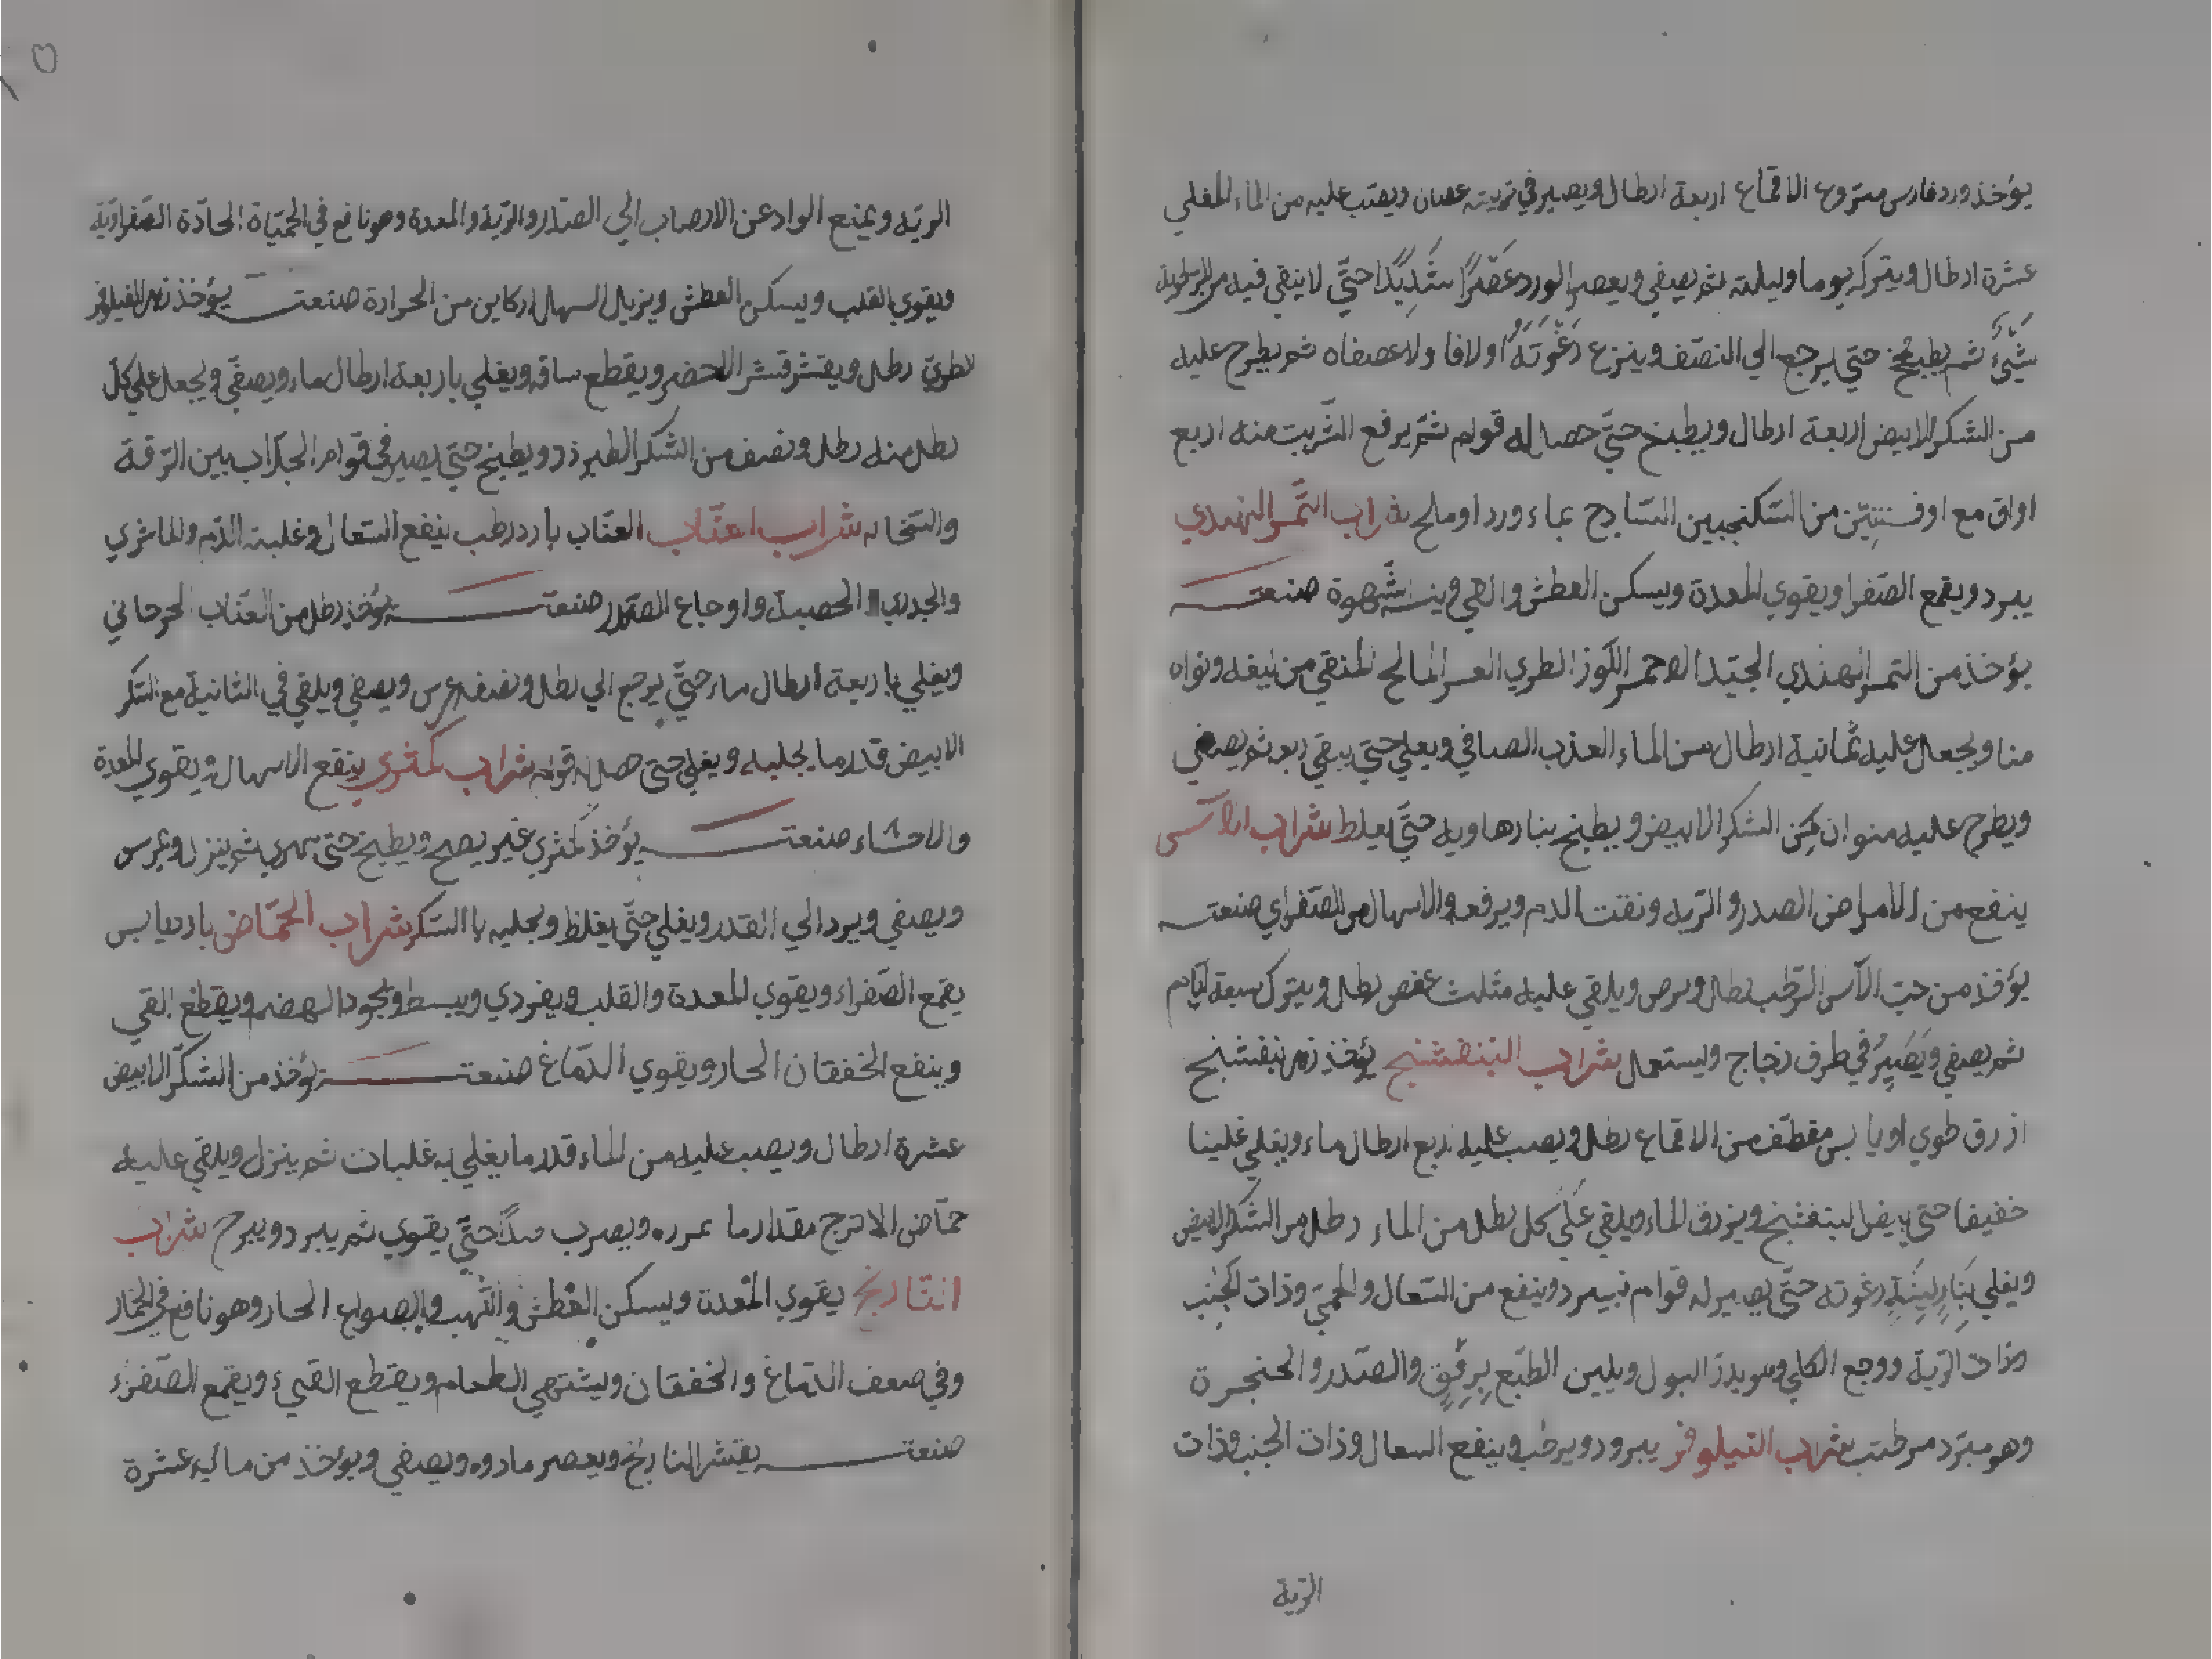 يؤخذ ورد فارس منزوع الاقماع اربعة ارطال ويصير في ويصب عليه من الماء المغلي
عشرة ارطال ويترك يوما وليلة ثم يصفي ويعصر الورد عَصْرًا شَدِيدًا حتّي لا يبقي فيه من الرطوبة
شَيْئٌ ثم يطبخ حتي يرجع الي النصف وينزع رَغْوَتَهُ اولا فا ولا عصفاه ثم يطرح عليه
من السّكر الابيض اربعة ارطال ويطبخ حتّي حصل له قوام ثمّ يرفع الشّربت منه اربع
اواق مع اوقيتين من السّكنجبين السّادج بماء ورد او ملح شراب التّمر الهندي
يبرد ويقمع الصّفرا ويقوي المعدة ويسكن العطش والقي وينشّهوة صنعته
يؤخذ من التمر الهندي الجيّد الاحمر اللّوز الطري العسر المالح المنقي من ليفه ونواه
منا ويجعل عليه ثمانية ارطال من الماء العذب الصافي ويغلي حتي يبقي ربعه ثم يصفي
ويطرح عليه منوان من السّكر الابيض ويطبخ بنار هاديه حتّي يغلط شراب الآسي
ينفع من الامراض الصدر والرّيه ونفث الدم ويرفعه والاسهال من الصّفراي صنعته
يؤخذ من حبّ الآس الرّطب رطل ويرض ويلقي عليه مثلث عفص رطل ويترك سبعة ايّام
ثم يصفي ويَصِيرُ في ظرف زجاج ويستعمل شراب البنفشنج يؤخذ زهر بنفشنج
ازرق طري او يابس مقطّف من الاقماع رطل ويصب عليه اربع ارطال ماء ويغلي غلينا
خفيفا حتي البنفشنج الماء ويلقي عَلَي كل رطل من الماء رطل من السّكر الابيض
ويغلي بِنَارٍ لَيِّنَةٍ رغوته حتّي يصير له قوام وينفع من السّعال والحمّي وذات الجَنْب
وذات الرّية ووجع الكلي البول ويلين الطّبع بِرِفْقٍ والصّدر والحنجرة
وهو مبرّد مرطّب شراب النيلوفر يبرد ويرطب وينفع السعال وذات الجنب وذات
الرّية
الريّه ويمنع المواد عن الانصاب الي الصّدر والرّية والمعدة وهو نافع في الحمّياة الحادّة الصّفراويّة
ويقوي القلب ويسكن العطش ويزيل السهال اركاين من الحرارة صنعته يؤخذ زهر النيلوفر
لطريّ رطل ويقشر قشر الاخضر ويقطع ساقه ويغلي باربعة ارطال ماء ويصفّي ويجعل علي كلّ
رطل منه رطل ونصف من السّكر الطبرزد ويطبخ حتّي يصير في قوام الجلاب بين الرّقة
والسّخانه شراب اعنّاب العنّاب بارد رطب ينفع السّعال وغلبة الدّم والماشري
والجدري والحصبة واوجاع الصّدر صنعته يؤخذ رطل من العنّاب الجرجاني
ويغلي باربعة ارطال ماء حتّي يرجع الي رطل ونصف ويمرس ويصفي ويلقي في الثانية مع السّكر
الابيض قدر ما يجليه ويغلي حتي حصل له قوام شراب كمثري ينفع الاسهال ويقوي المعدة
والاحشاء صنعته يؤخذ كمثري غير ويطبخ حتي ثم ينزل ويمرس
ويصفي ويرد الي القدر ويغلي حتّي يغلظ ويجليه باالسّكر شراب الحمّاض بارد يابس
يقمع الصّفراء ويقوي المعدة والقلب ويبسط ويجود الهضم ويقطع القي
وينفع الخفقان الحار ويقوي الدّماغ صنعته يؤخذ من السّكر الابيض
عشرة ارطال ويصب عليه من الماء قدر ما يغلي به غلبات ثم ينزل ويلقي عليه
حمّاض الاترج مقدار ما ويضرب حتّي يقوي ثم يبرد شراب
النّارنج يقوي المعدة ويسكن العطش والتّهب الحار وهو نافع في الخمار
وفي ضعف الدّماغ والخفقان ويشتهي الطعام ويقطع القيء ويقمع الصّفراء
صنعته يقشر النارنج ويعصر ويصفي ويؤخذ من مائه عشرة